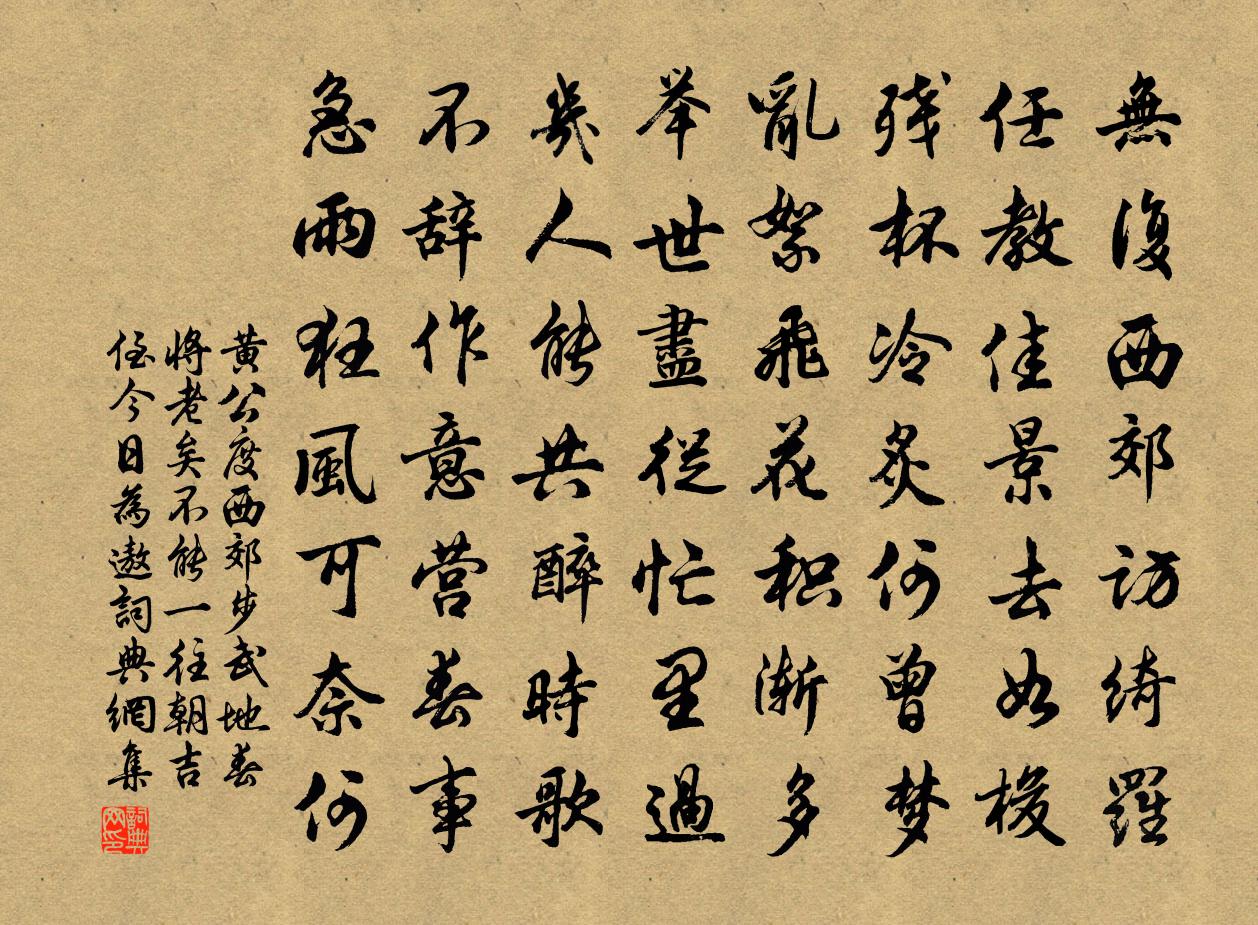 無復西郊訪綺羅
任教佳景去如梭
残杯冷炙何曾梦
亂絮飛花积渐多
举世盡從忙里過
幾人能共醉時歌
不辞作意营春事
急雨狂風可奈何
黄公度西郊步武地春
将老矣不能一往朝吉
侄今日為邀詞典網集
詞典
网印